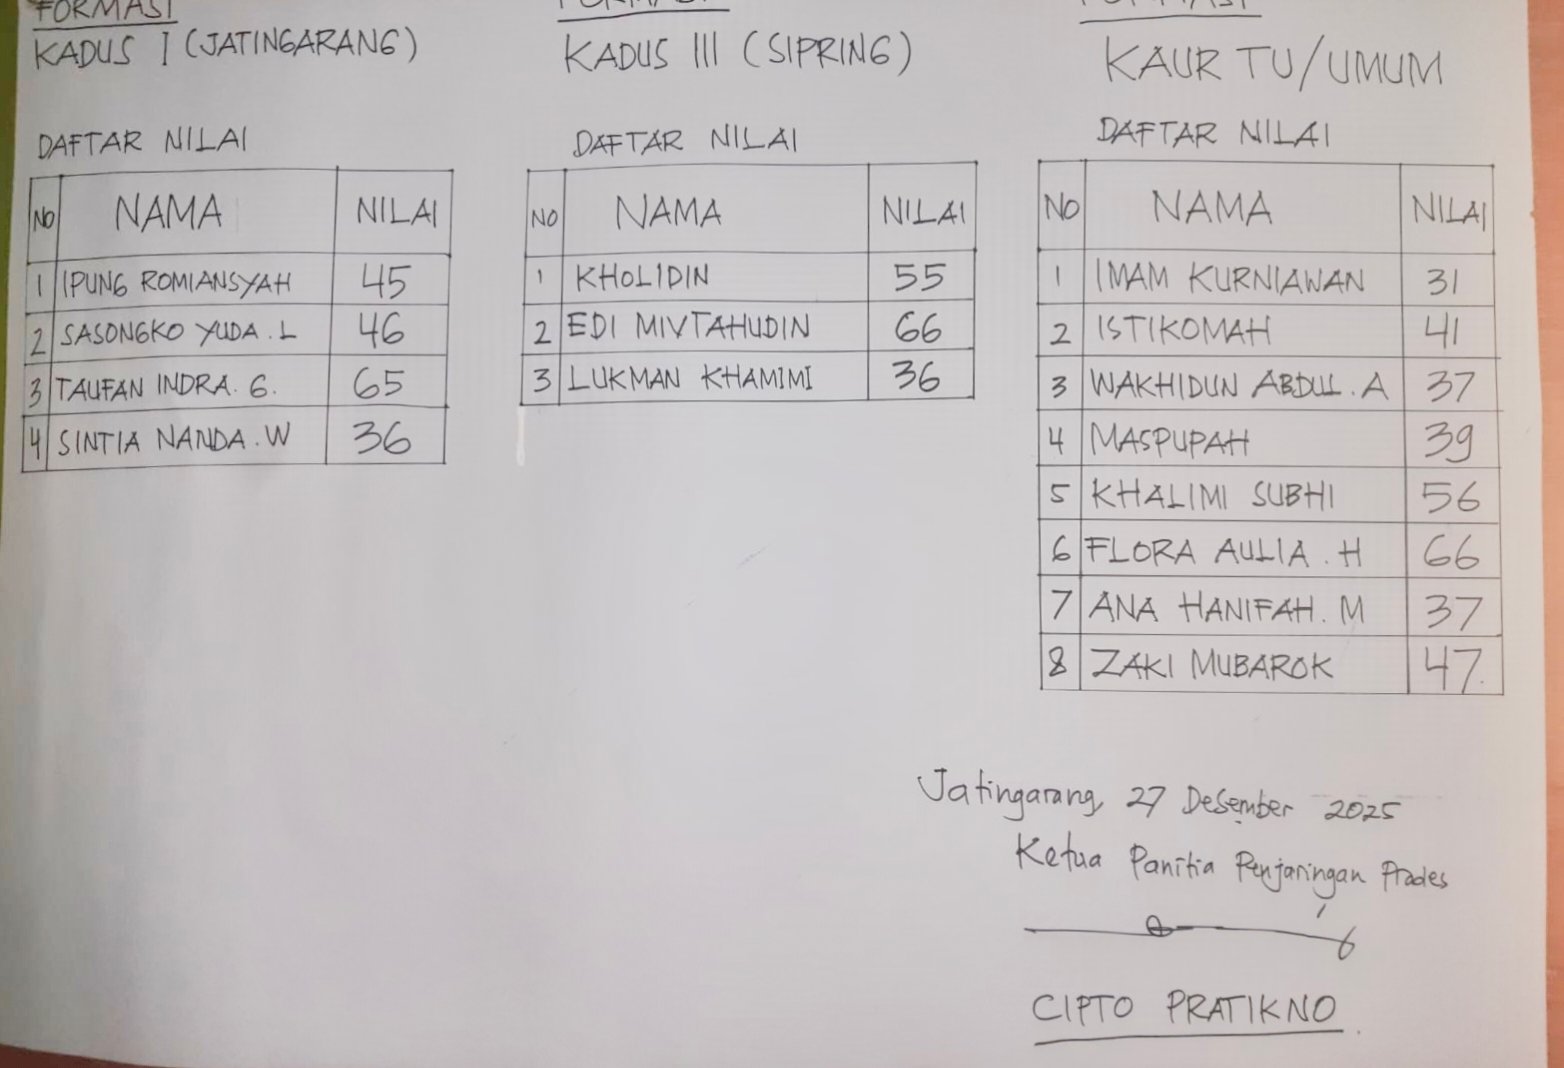 FORMASI
KADUS I (JATINGARANG)
DAFTAR NILAI
NO NAMA NILAI
1 IPUNG ROMIANSYAH 45
2 SASONGKO YUDA . L 46
3 TAUFAN INDRA. G. 65
4 SINTIA NANDA . W 36
FORMASI
KADUS III (SIPRING)
DAFTAR NILAI
NO NAMA NILAI
1 KHOLIDIN 55
2 EDI MIVTAHUDIN 66
3 LUKMAN KHAMIMI 36
FORMASI
KAUR TU/UMUM
DAFTAR NILAI
NO NAMA NILAI
1 IMAM KURNIAWAN 31
2 ISTIKOMAH 41
3 WAKHIDUN ABDUL . A 37
4 MASPUPAH 39
5 KHALIMI SUBHI 56
6 FLORA AULIA . H 66
7 ANA HANIFAH. M 37
8 ZAKI MUBAROK 47
Jatingarang, 27 Desember 2025
Ketua Panitia Penjaringan Prades
CIPTO PRATIKNO